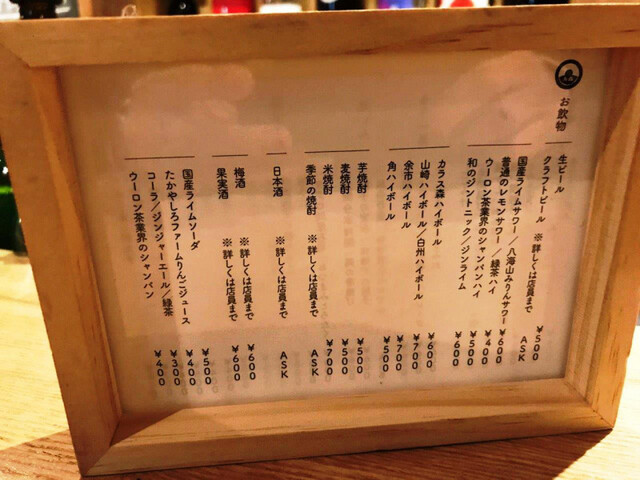 お飲物
生ビール ¥500
クラフトビール ※詳しくは店員まで ASK
国産ライムサワー／八海山みりんサワー ¥600
普通のレモンサワー／緑茶ハイ ¥400
ウーロン茶業界のシャンパンハイ ¥500
和のジントニック／ジンライム ¥600
カラス森ハイボール ¥600
山崎ハイボール／白州ハイボール ¥700
余市ハイボール ¥700
角ハイボール ¥500
芋焼酎 ¥500
麦焼酎 ¥500
米焼酎 ¥700
季節の焼酎 ※詳しくは店員まで ASK
日本酒 ※詳しくは店員まで ASK
梅酒 ※詳しくは店員まで ¥600
果実酒 ※詳しくは店員まで ¥600
国産ライムソーダ ¥500
たかやしろファームりんごジュース ¥400
コーラ／ジンジャーエール／緑茶 ¥300
ウーロン茶業界のシャンパン ¥400